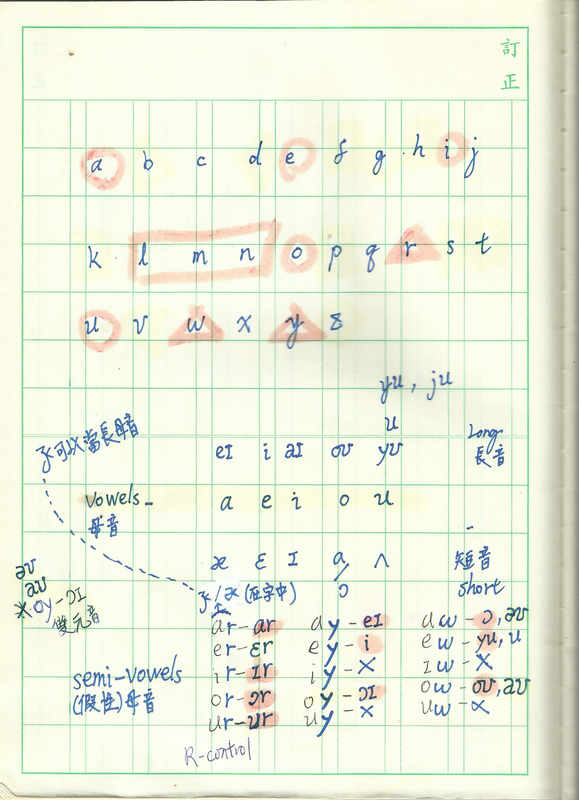 訂正
a b c d e f g h i j
k l m n o p q r s t
u v w x y z
yu, ju
u
可以當長母音
eɪ i aɪ oʊ yʊ
Long
長音
vowels -
母音
a e i o u
æ ɛ ɪ ɑ ʌ
ɔ
短音
short
(在字中)
aʊ
oy - ɔɪ
雙元音
semi-vowels
(假性)母音
ar - ar
er - ɛr
ir - ɪr
or - ɔr
ur - ʊr
R-control
ay - eɪ
ey - i
iy - x
oy - ɔɪ
uy - x
aw - ɔ, aʊ
ew - yu, u
ɪw - x
ow - oʊ, aʊ